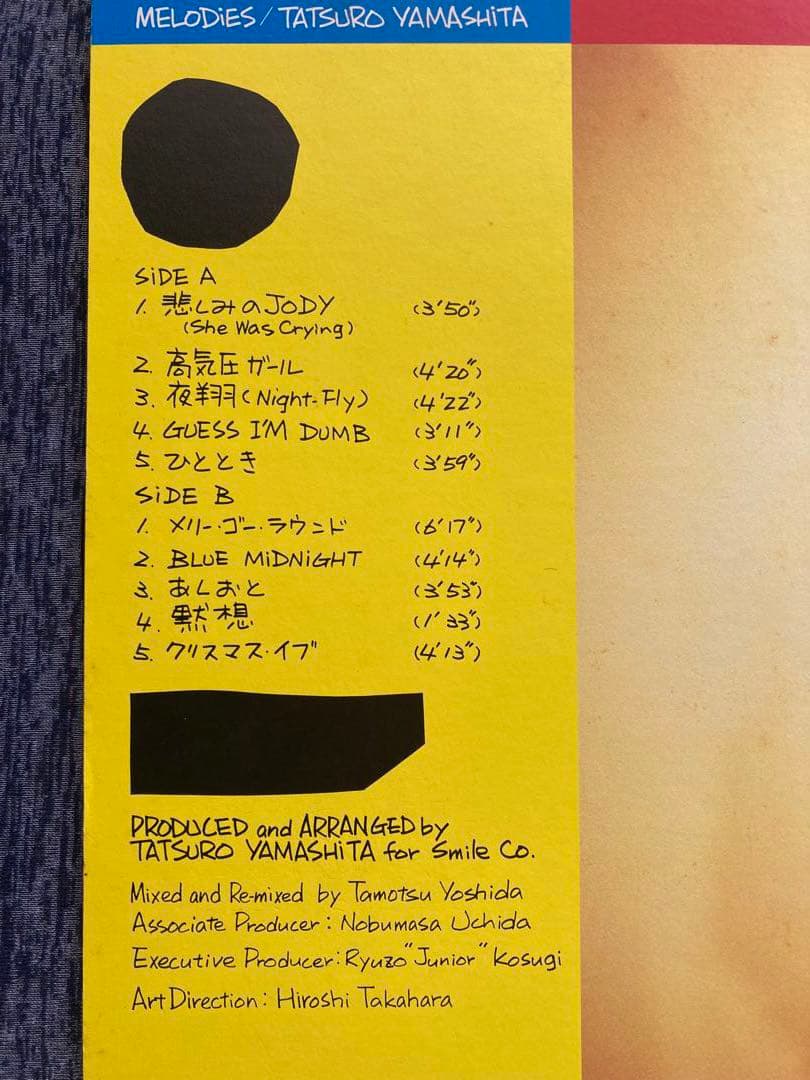 MELODiES / TATSURO YAMASHiTA
SiDE A
1. 悲しみのJODY (3'50")
(She Was Crying)
2. 高気圧ガール (4'20")
3. 夜翔 (Night-Fly) (4'22")
4. GUESS I'M DUMB (3'11")
5. ひととき (3'59")
SiDE B
1. メリー・ゴー・ラウンド (6'17")
2. BLUE MiDNiGHT (4'14")
3. あしおと (3'53")
4. 黙想 (1'33")
5. クリスマス・イブ (4'13")
PRODUCED and ARRANGED by
TATSURO YAMASHiTA for Smile Co.
Mixed and Re-mixed by Tamotsu Yoshida
Associate Producer : Nobumasa Uchida
Executive Producer : Ryuzo "Junior" Kosugi
Art Direction : Hiroshi Takahara